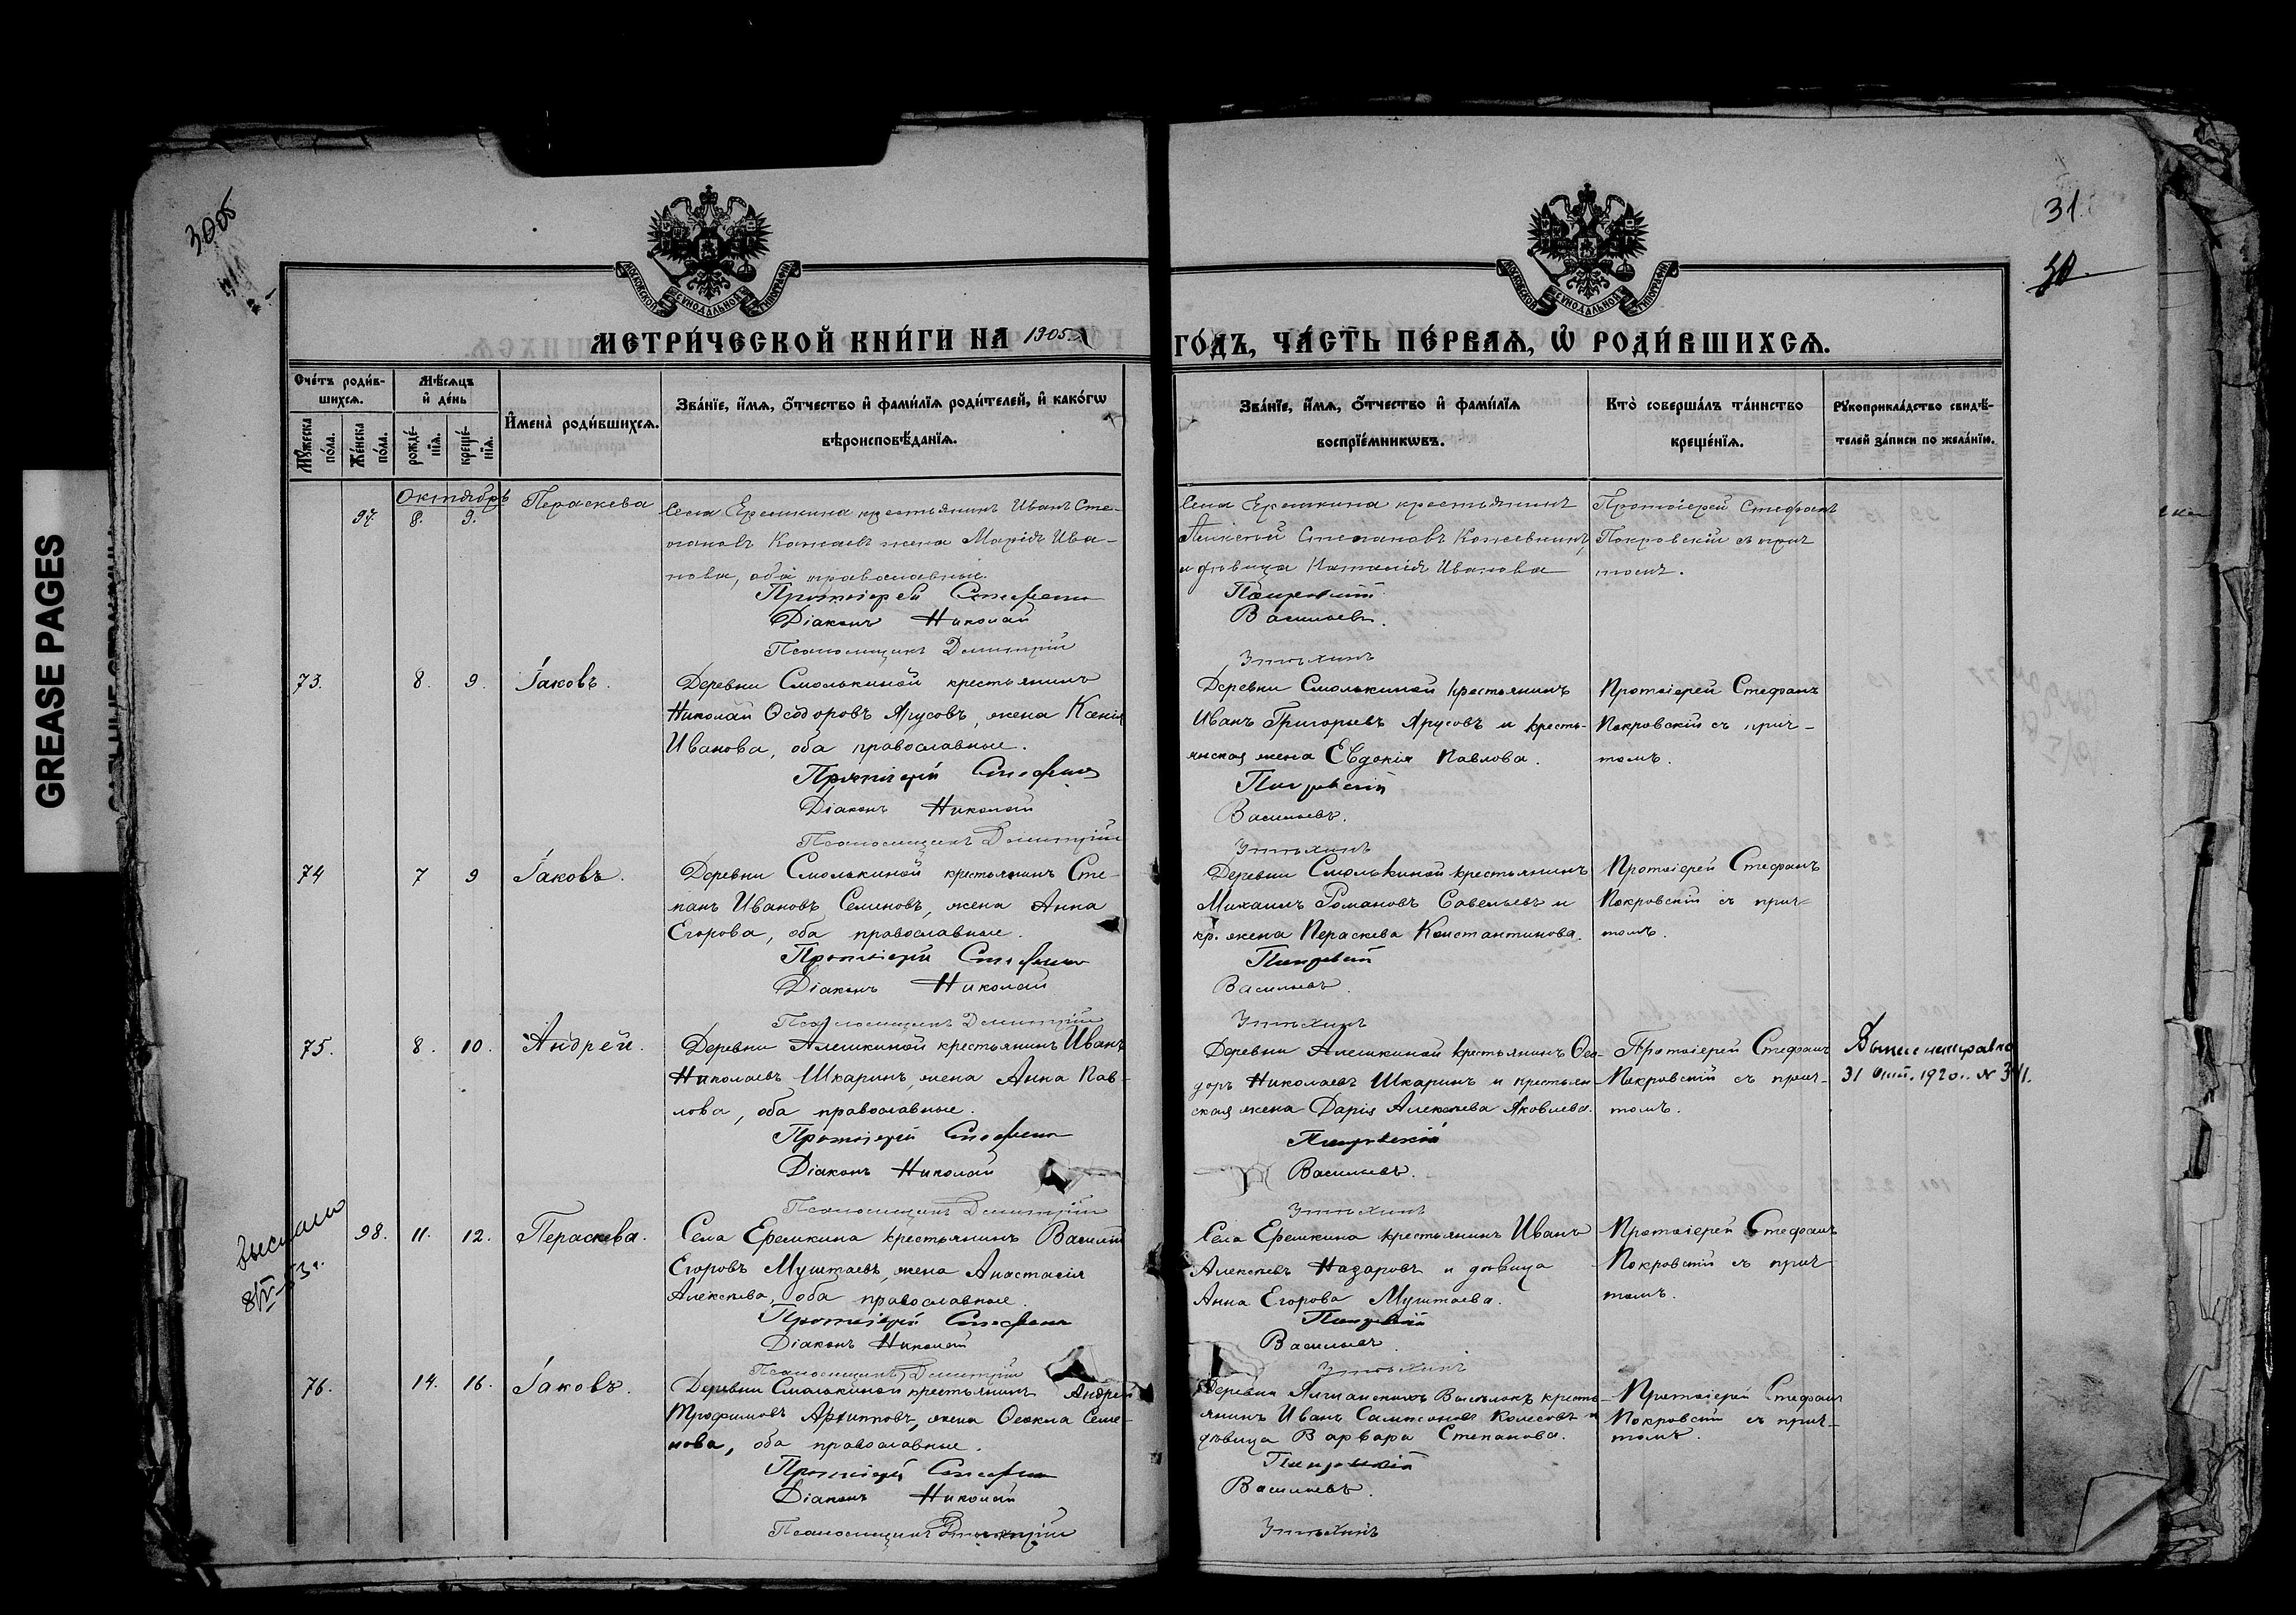 GREASE PAGES
31.
МЕТРИ́ЧЕСКОЙ КНИ́ГИ НА 1905
ГО́ДЪ, ЧА́СТЬ ПЕ́РВАѦ, Ѡ҆ РОДИ́ВШИХСѦ.
МОСКОВСКОЙ СѴНОДАЛЬНОЙ ТИПОГРАФІИ
МОСКОВСКОЙ СѴНОДАЛЬНОЙ ТИПОГРАФІИ
Сче́тъ роди́в-
шихсѧ.
Мꙋ́жеска по́ла.
Же́нска по́ла.
Мѣ́сѧцъ
и҆ де́нь
рожде́-нїѧ.
креще́-нїѧ.
И҆мена̀ роди́вшихсѧ.
Зва́нїе, и҆́мѧ, ѻ҆́тчество и҆ фами́лїѧ роди́телей, и҆ како́гѡ
вѣроисповѣ́данїѧ.
Зва́нїе, и҆́мѧ, ѻ҆́тчество и҆ фами́лїѧ
воспрїе́мникѡвъ.
Кто̀ соверша́лъ та́инство
креще́нїѧ.
Рꙋкоприкла́дство свидѣ́-
телей за́писи по жела́нїю.
Октябрь
97. 8. 9. Параскева
Села Еремкина крестьянинъ Иванъ Сте-
пановъ жена Марія Ива-
нова, оба православные.
Протоіерей Стефанъ
Діаконъ Николай
Псаломщикъ Димитрій
Села Еремкина крестьянинъ
Алексѣй Степановъ
и дѣвица Наталія Иванова
Покровскій
Васильевъ.
Утѣхинъ
Протоіерей Стефанъ
Покровскій съ прич
томъ.
73. 8. 9. Іаковъ.
Деревни Смолькиной крестьянинъ
Николай Ѳеодоровъ Ярусовъ, жена Ксенія
Иванова, оба православные.
Протоіерей Стефанъ
Діаконъ Николай
Псаломщикъ Димитрій
Деревни Смолькиной крестьянинъ
Иванъ Григорьевъ Ярусовъ и кресть-
янская жена Евдокія Павлова.
Покровскій
Васильевъ.
Утѣхинъ
Протоіерей Стефанъ
Покровскій съ прич-
томъ.
74 7 9 Іаковъ.
Деревни Смолькиной крестьянинъ Сте-
панъ Ивановъ Семеновъ, жена Анна
Егорова, оба православные.
Протоіерей Стефанъ
Діаконъ Николай
Псаломщикъ Димитрій
Деревни Смолькиной крестьянинъ
Михаилъ Романовъ Савельевъ и
кр. жена Параскева Константинова.
Покровскій
Васильевъ.
Утѣхинъ
Протоіерей Стефанъ
Покровскій съ прич-
томъ.
75. 8. 10. Андрей.
Деревни Алешкиной крестьянинъ Иванъ
Николаевъ Шкаринъ, жена Анна Пав-
лова, оба православные.
Протоіерей Стефанъ
Діаконъ Николай
Псаломщикъ Димитрій
Деревни Алешкиной крестьянинъ Ѳео-
доръ Николаевъ Шкаринъ и крестьян-
ская жена Дарія Алексѣева Яковлева.
Покровскій
Васильевъ.
Утѣхинъ
Протоіерей Стефанъ
Покровскій съ прич-
томъ.
31 1920 г. №
98. 11. 12. Параскева.
Села Еремкина крестьянинъ Василій
Егоровъ Муштаевъ, жена Анастасія
Алексѣева, оба православные.
Протоіерей Стефанъ
Діаконъ Николай
Псаломщикъ Димитрій
Села Еремкина крестьянинъ Иванъ
Алексѣевъ Назаровъ и дѣвица
Анна Егорова Муштаева.
Покровскій
Васильевъ
Утѣхинъ
Протоіерей Стефанъ
Покровскій съ прич
томъ.
выслано
76. 14. 16. Іаковъ.
Деревни Смолькиной крестьянинъ Андрей
Трофимовъ Архиповъ, жена Ѳекла Семе-
нова, оба православные.
Протоіерей Стефанъ
Діаконъ Николай
Псаломщикъ Димитрій
Деревни Выселокъ кресть-
янинъ Иванъ Самсоновъ Колесовъ и
дѣвица Варвара Степанова.
Покровскій
Васильевъ.
Утѣхинъ
Протоіерей Стефанъ
Покровскій съ прич-
томъ.